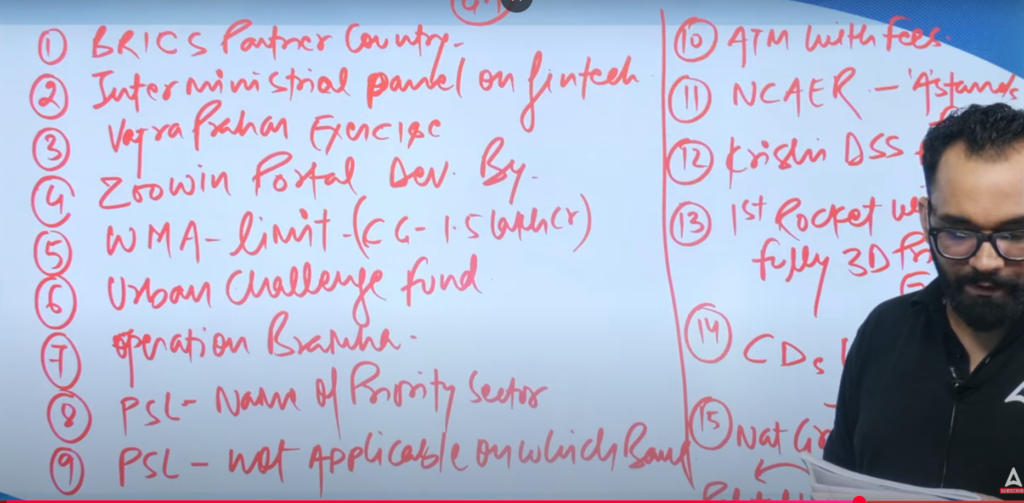 ① BRICS Partner Country.
② Inter ministrial panel on fintech
③ Vajra Prahar Exercise
④ Zoowin Portal Dev. By.
⑤ WMA - limit - (CG - 1.5 lakh cr)
⑥ Urban Challenge fund
⑦ operation Bramha.
⑧ PSL - Name of Priority Sector
⑨ PSL - Not Applicable on which Bank
⑩ ATM with fees.
⑪ NCAER - 'A' stands
⑫ Krishi DSS
⑬ 1st Rocket
fully 3D
⑭ CDs
⑮ Nat